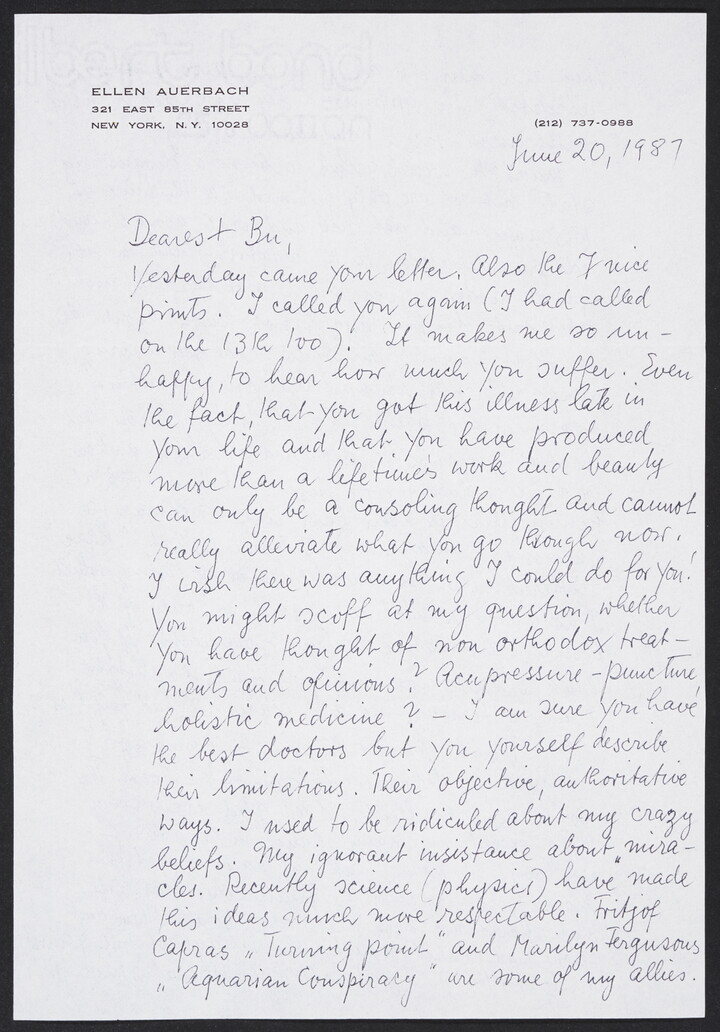 ELLEN AUERBACH
321 EAST 85TH STREET
NEW YORK, N.Y. 10028
(212) 737-0988
June 20, 1987
Dearest Bu,
Yesterday came your letter. Also the 7 nice
prints. I called you again (I had called
on the 13th too). It makes me so un-
happy, to hear how much you suffer. Even
the fact, that you got this illness late in
your life and that you have produced
more than a lifetime's work and beauty
can only be a consoling thought and cannot
really alleviate what you go through now.
I wish there was anything I could do for you!
You might scoff at my question, whether
you have thought of non orthodox treat-
ments and opinions? Acupressure - puncture
holistic medicine? - I am sure you have
the best doctors but you yourself describe
their limitations. Their objective, authoritative
ways. I used to be ridiculed about my crazy
beliefs. My ignorant insistance about „mira-
cles. Recently science (physics) have "made
this ideas much more respectable. Fritjof
Capras „Turning point" and Marilyn Fergusons
„Aquarian Conspiracy" are some of my allies.